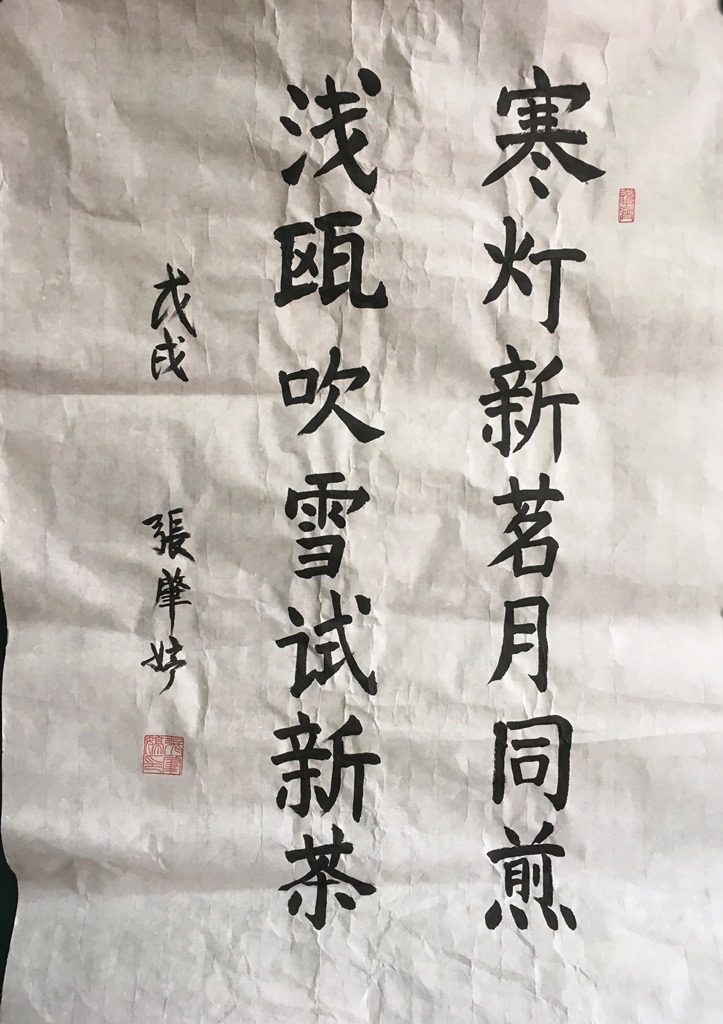 寒灯新茗月同煎
浅瓯吹雪试新茶
戊戌
張肇婷